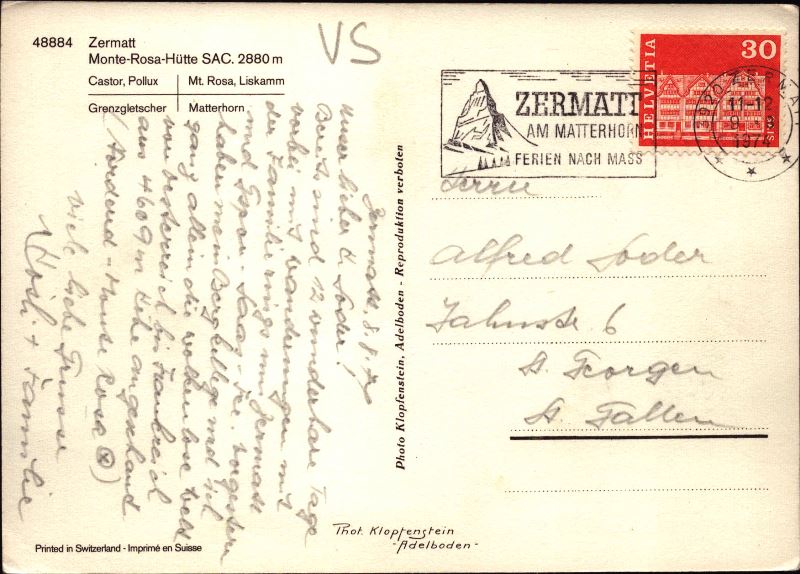 48884 Zermatt
Monte-Rosa-Hütte SAC. 2880 m
Castor, Pollux Mt. Rosa, Liskamm
Grenzgletscher Matterhorn
VS
Zermatt, 8.8.74
Unser lieber A. Soder!
Bereits sind 12 wunderbare Tage
vorbei mit Wanderungen mit
der Familie rings um Zermatt
und Saas-Fee. Vorgestern
haben mein Bergkollege und ich
ganz allein die wolkenlose Welt
von Oesterreich bis Frankreich
aus 4609 m Höhe angeschaut
(Nordend - Monte Rosa)
Viele liebe Grüsse
+ Familie
Photo Klopfenstein, Adelboden - Reproduktion verboten
Printed in Switzerland - Imprimé en Suisse
Phot. Klopfenstein
-Adelboden-
ZERMATT
AM MATTERHORN
FERIEN NACH MASS
HELVETIA
30
3920 ZERMATT
11-12
1974
Herrn
Alfred Soder
Bahnstr 6
St. Georgen
St. Gallen